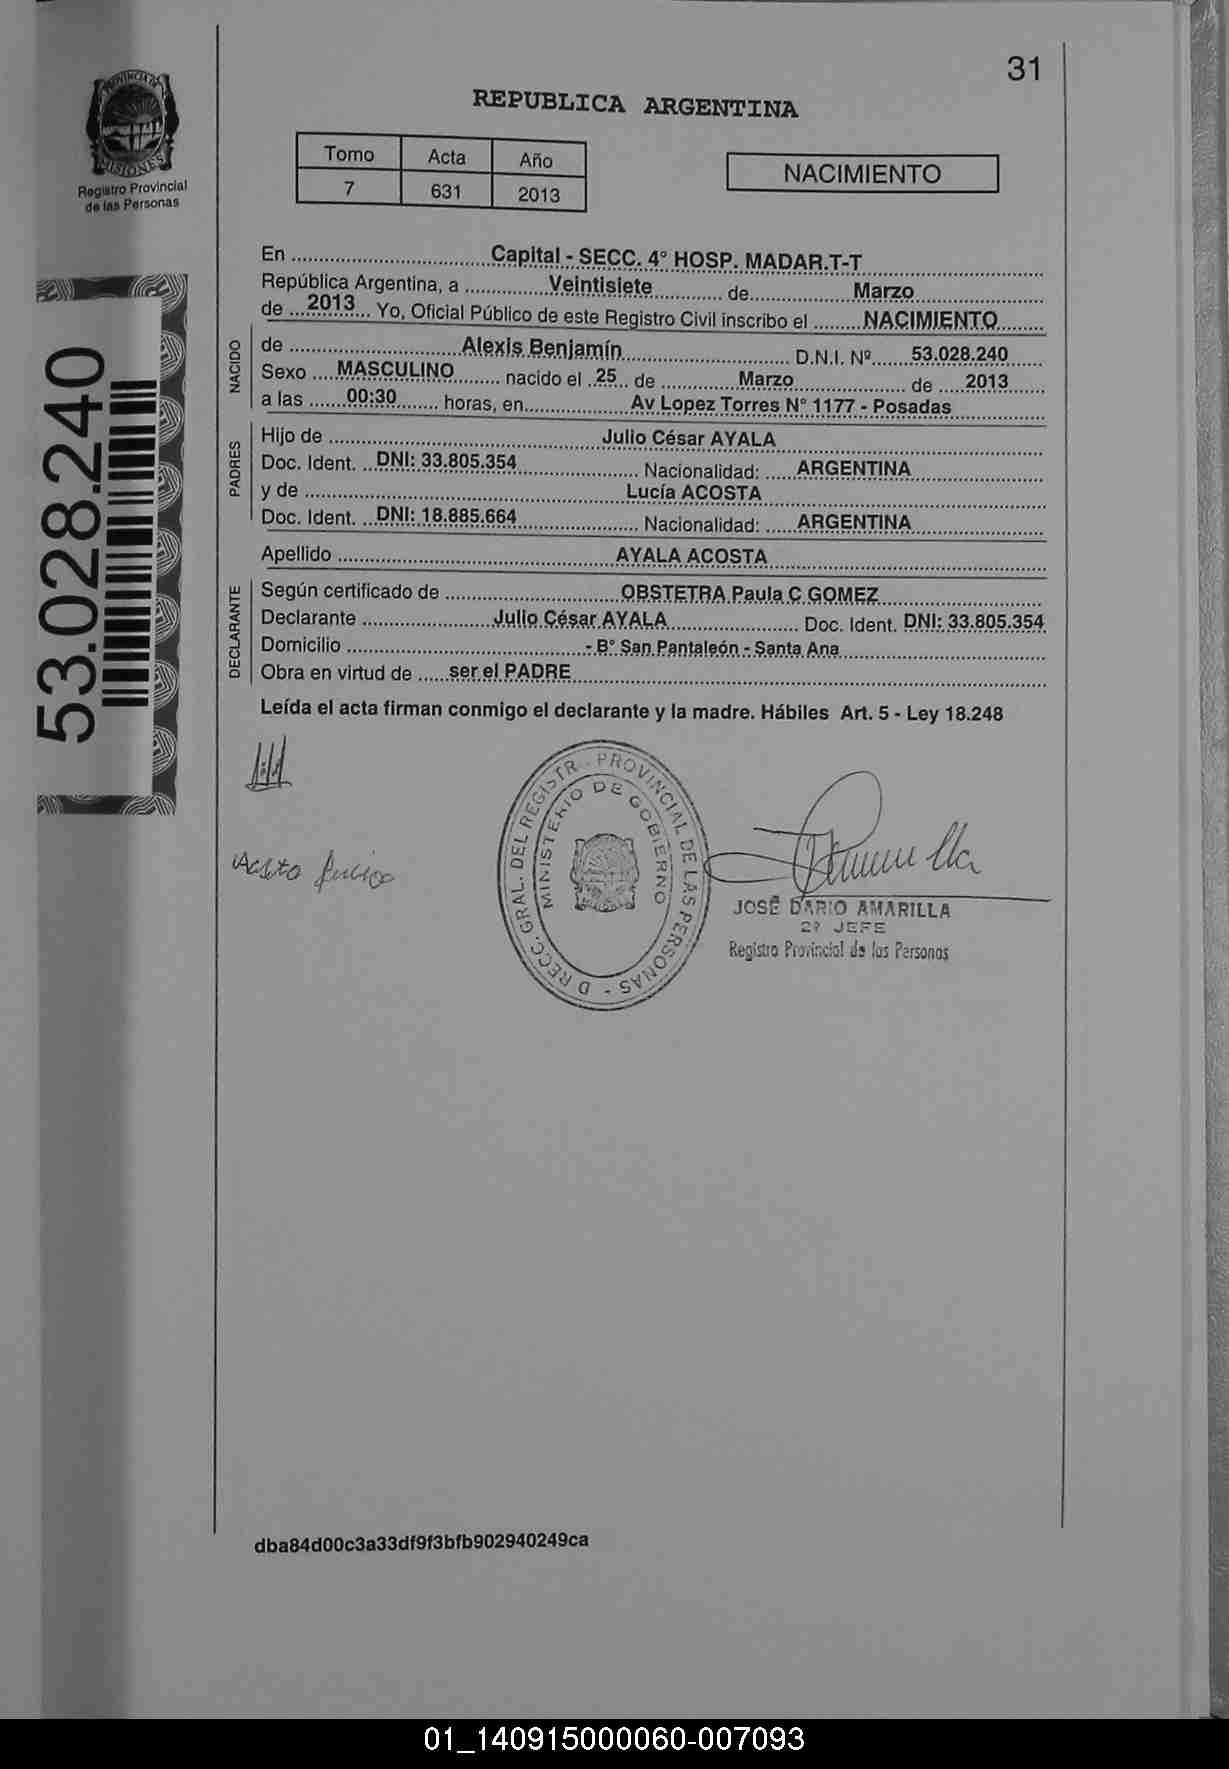 31
PROVINCIA DE
MISIONES
Registro Provincial
de las Personas
REPUBLICA ARGENTINA
Tomo Acta Año
7 631 2013
NACIMIENTO
En ................ Capital - SECC. 4° HOSP. MADAR.T-T
República Argentina, a ................ Veintisiete ................ de ................ Marzo
de ... 2013 ... Yo, Oficial Público de este Registro Civil inscribo el ......... NACIMIENTO
NACIDO
de ................ Alexis Benjamín ................ D.N.I. Nº ...... 53.028.240
Sexo .... MASCULINO ......... nacido el .. 25 .. de ............. Marzo ................ de .... 2013
a las ...... 00:30 ....... horas, en ................ Av Lopez Torres N° 1177 - Posadas
PADRES
Hijo de ................ Julio César AYALA
Doc. Ident. ... DNI: 33.805.354 ................ Nacionalidad: ..... ARGENTINA
y de ................ Lucía ACOSTA
Doc. Ident. ... DNI: 18.885.664 ................ Nacionalidad: ..... ARGENTINA
Apellido ................ AYALA ACOSTA
DECLARANTE
Según certificado de ................ OBSTETRA Paula C GOMEZ
Declarante ................ Julio César AYALA ................ Doc. Ident. DNI: 33.805.354
Domicilio ................ - B° San Pantaleón - Santa Ana
Obra en virtud de ..... ser el PADRE
Leída el acta firman conmigo el declarante y la madre. Hábiles Art. 5 - Ley 18.248
53.028.240
Acosta Lucia
DIRECC. GRAL. DEL REGISTR. PROVINCIAL DE LAS PERSONAS -
MINISTERIO DE GOBIERNO
JOSÉ DARIO AMARILLA
2º JEFE
Registro Provincial de las Personas
dba84d00c3a33df9f3bfb902940249ca
01_140915000060-007093